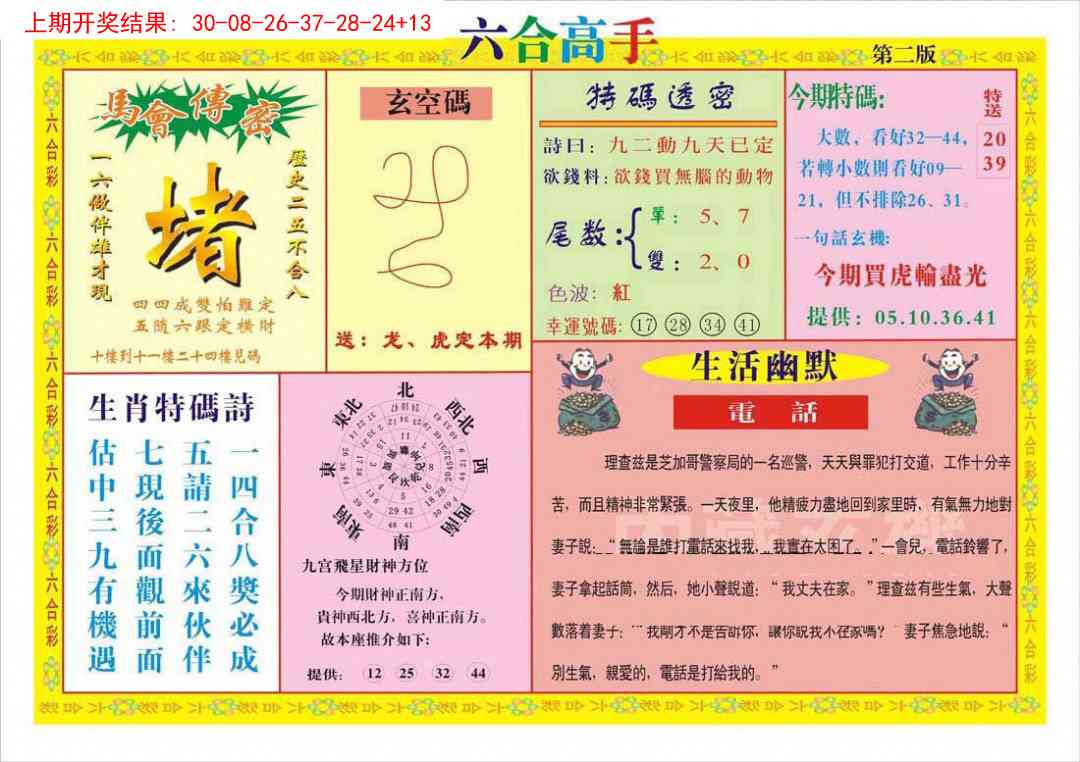 上期开奖结果: 30-08-26-37-28-24+13
六合高手
第二版
馬會傳密
歷史二五不合八
堵
一六做伴雄才現
四四成雙怕難定
五隨六跟定橫財
十樓到十一樓二十四樓見碼
玄空碼
送：龙、虎定本期
特碼透密
詩曰：九二動九天已定
欲錢料：欲錢買無腦的動物
尾数：
單：5、7
雙：2、0
色波：紅
幸運號碼: 17 28 34 41
今期特碼:
特送
20
39
大數，看好32—44，
若轉小數則看好09—
21，但不排除26、31。
一句話玄機:
今期買虎輸盡光
提供：05.10.36.41
生肖特碼詩
一四合八獎必成
五請二六來伙伴
七現後面觀前面
估中三九有機遇
北
東北
西北
東
西
東南
西南
南
九宮飛星財神方位
今期財神正南方，
貴神西北方，喜神正南方。
故本座推介如下:
提供: 12 25 32 44
生活幽默
電 話
理查兹是芝加哥警察局的一名巡警，天天與罪犯打交道，工作十分辛
苦，而且精神非常緊張。一天夜里，他精疲力盡地回到家里時，有氣無力地對
妻子說：“無論是誰打電話來找我，我實在太困了。”一會兒，電話鈴響了，
妻子拿起話筒，然后，她小聲説道：“我丈夫在家。”理查兹有些生氣，大聲
數落着妻子：“我剛才不是告訴你，讓你說我不在家嗎？”妻子焦急地說：“
別生氣，親愛的，電話是打給我的。”